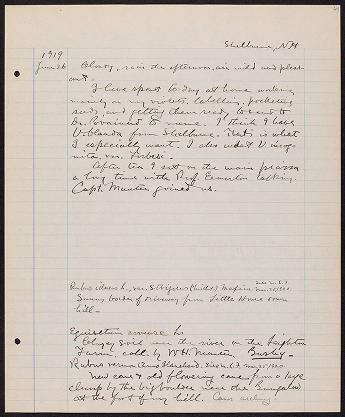 Shelburne, N.H.
1919
June 26
Cloudy, rain the afternoon, air mild and pleas-
ant.
I have spent to-day at home working
mainly on my violets, labelling, pocketing
seeds and getting them ready to send to
Dr. Brainerd. I think I have
V. blanda from Shelburne. That is what
I especially want. I also want V. incog-
nita, var. Forbesii.
After tea I sat on the main piazza
a long time with Prof. Emerton talking.
Capt. joined us.
Rubus idaeus L., var.
Sunny border of from Little House down
hill.
Equisetum arvense L.
soil near the river on the
Farm, coll. by W.H.
Rubus
new cane & old flowering cane from a large
clump by the big boulder near the Bungalow
at the foot of my hill.